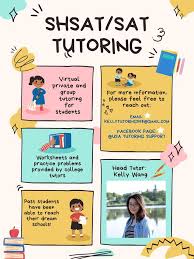 SHSAT/SAT
TUTORING
Virtual
private and
group
tutoring for
students
For more information,
please feel free to
reach out:
EMAIL:
FACEBOOK PAGE:
TUTORING SUPPORT
Worksheets and
practice problems
provided by college
tutors
Head Tutor:
Kelly Wang
Past students
have been
able to reach
their dream
schools!